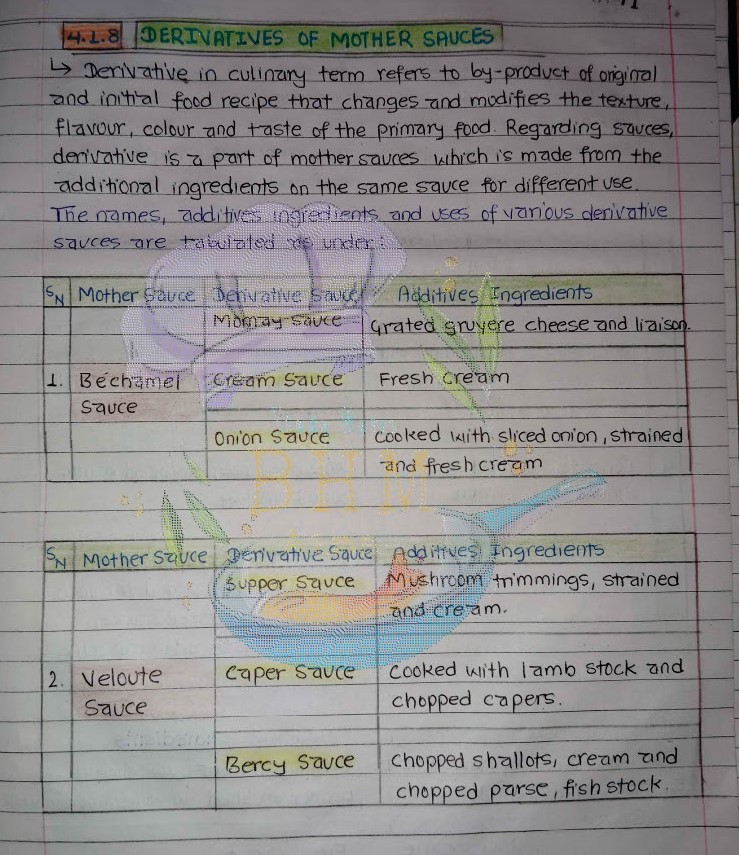 4.1.8 DERIVATIVES OF MOTHER SAUCES
↳ Derivative in culinary term refers to by-product of original
and initial food recipe that changes and modifies the texture,
flavour, colour and taste of the primary food. Regarding sauces,
derivative is a part of mother sauces which is made from the
additional ingredients on the same sauce for different use.
The names, additives ingredients and uses of various derivative
sauces are tabulated as under:
SN Mother Sauce Derivative Sauce Additives Ingredients
Mornay Sauce Grated gruyere cheese and liaison.
1. Béchamel Cream Sauce Fresh cream
Sauce
Onion Sauce Cooked with sliced onion, strained
and fresh cream
BHM
SN Mother Sauce Derivative Sauce Additives Ingredients
Supper Sauce Mushroom trimmings, strained
and cream.
2. Veloute Caper Sauce Cooked with lamb stock and
Sauce chopped capers.
Bercy Sauce Chopped shallots, cream and
chopped parse, fish stock.